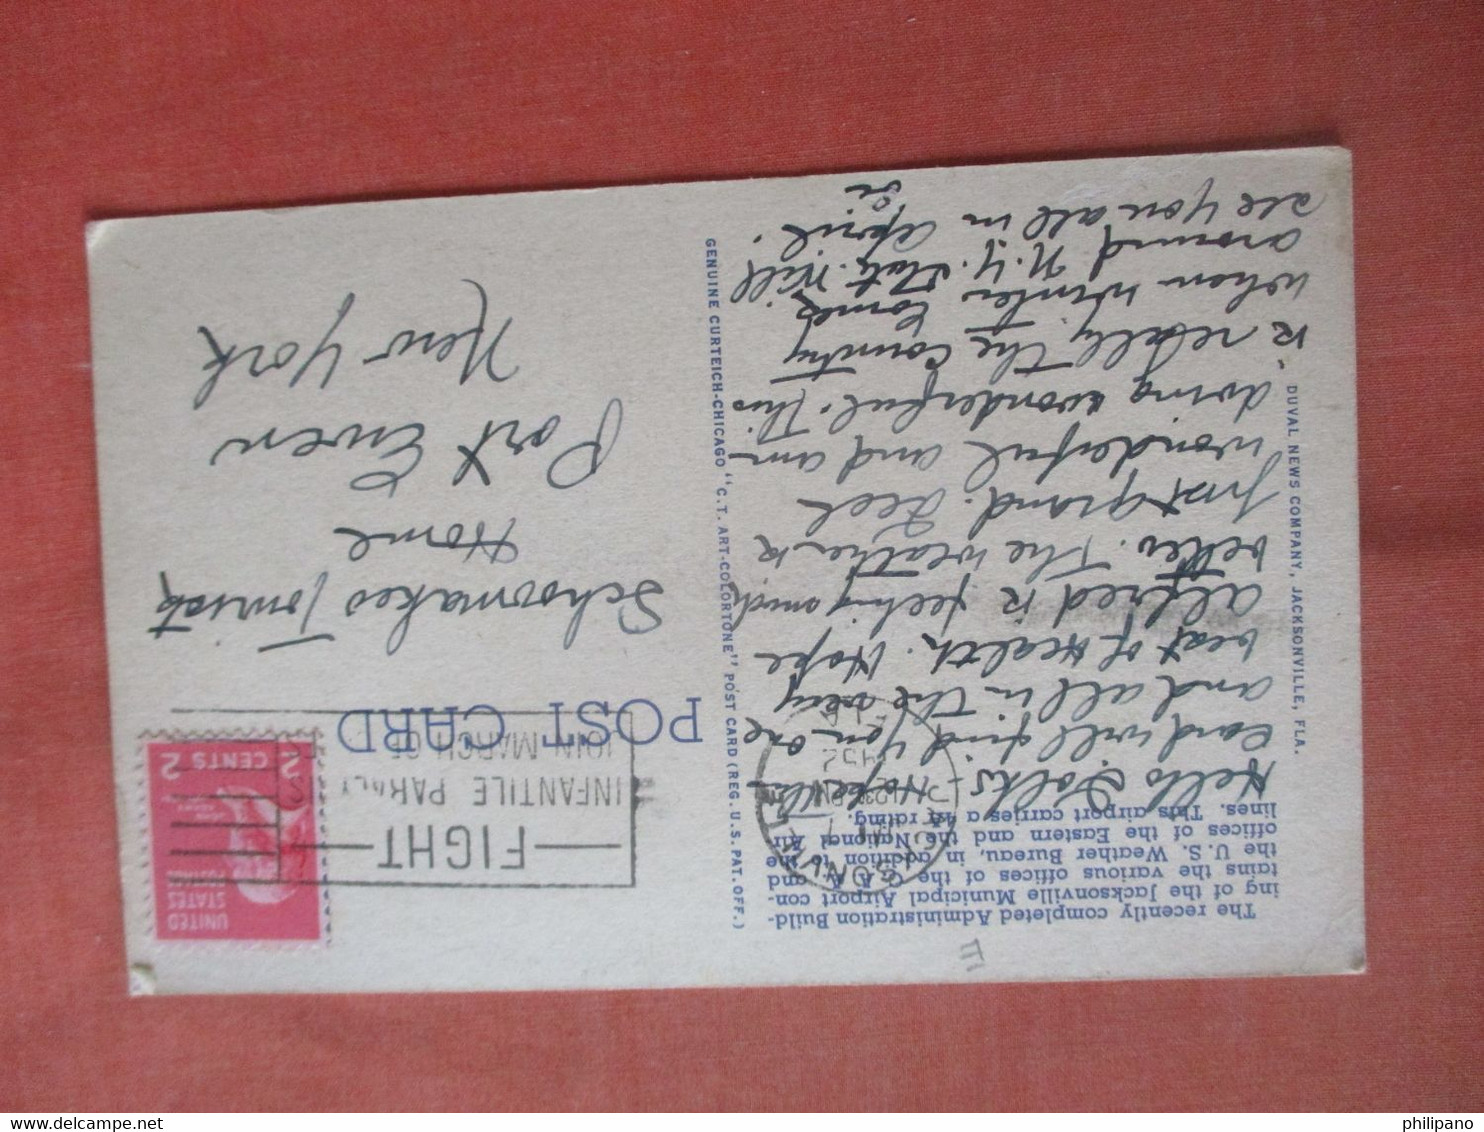 The recently completed Administration Build-
ing of the Jacksonville Municipal Airport con-
tains the various offices of the and
the U. S. Weather Bureau, in addition to the
offices of the Eastern and the National Air
lines. This airport carries a 4A rating.
Hello Folks - Hope this
card will find you one
and all in the very
best of Health. Hope
Alfred is feeling much
better. The weather is
just grand. Feel
wonderful and am
doing wonderful. This
is really the Country
when winter comes
around N.Y. State. Will
see you all in April.
GENUINE CURTEICH-CHICAGO "C.T. ART-COLORTONE" POST CARD (REG. U.S. PAT. OFF.)
DUVAL NEWS COMPANY, JACKSONVILLE, FLA.
POST CARD
FIGHT
INFANTILE PARALY
JOIN MARCH OF
1952
UNITED
STATES
POSTAGE
2 CENTS 2
Schoonmakes Tourist
Home
Port Ewen
New York
philipano
delcampe.net